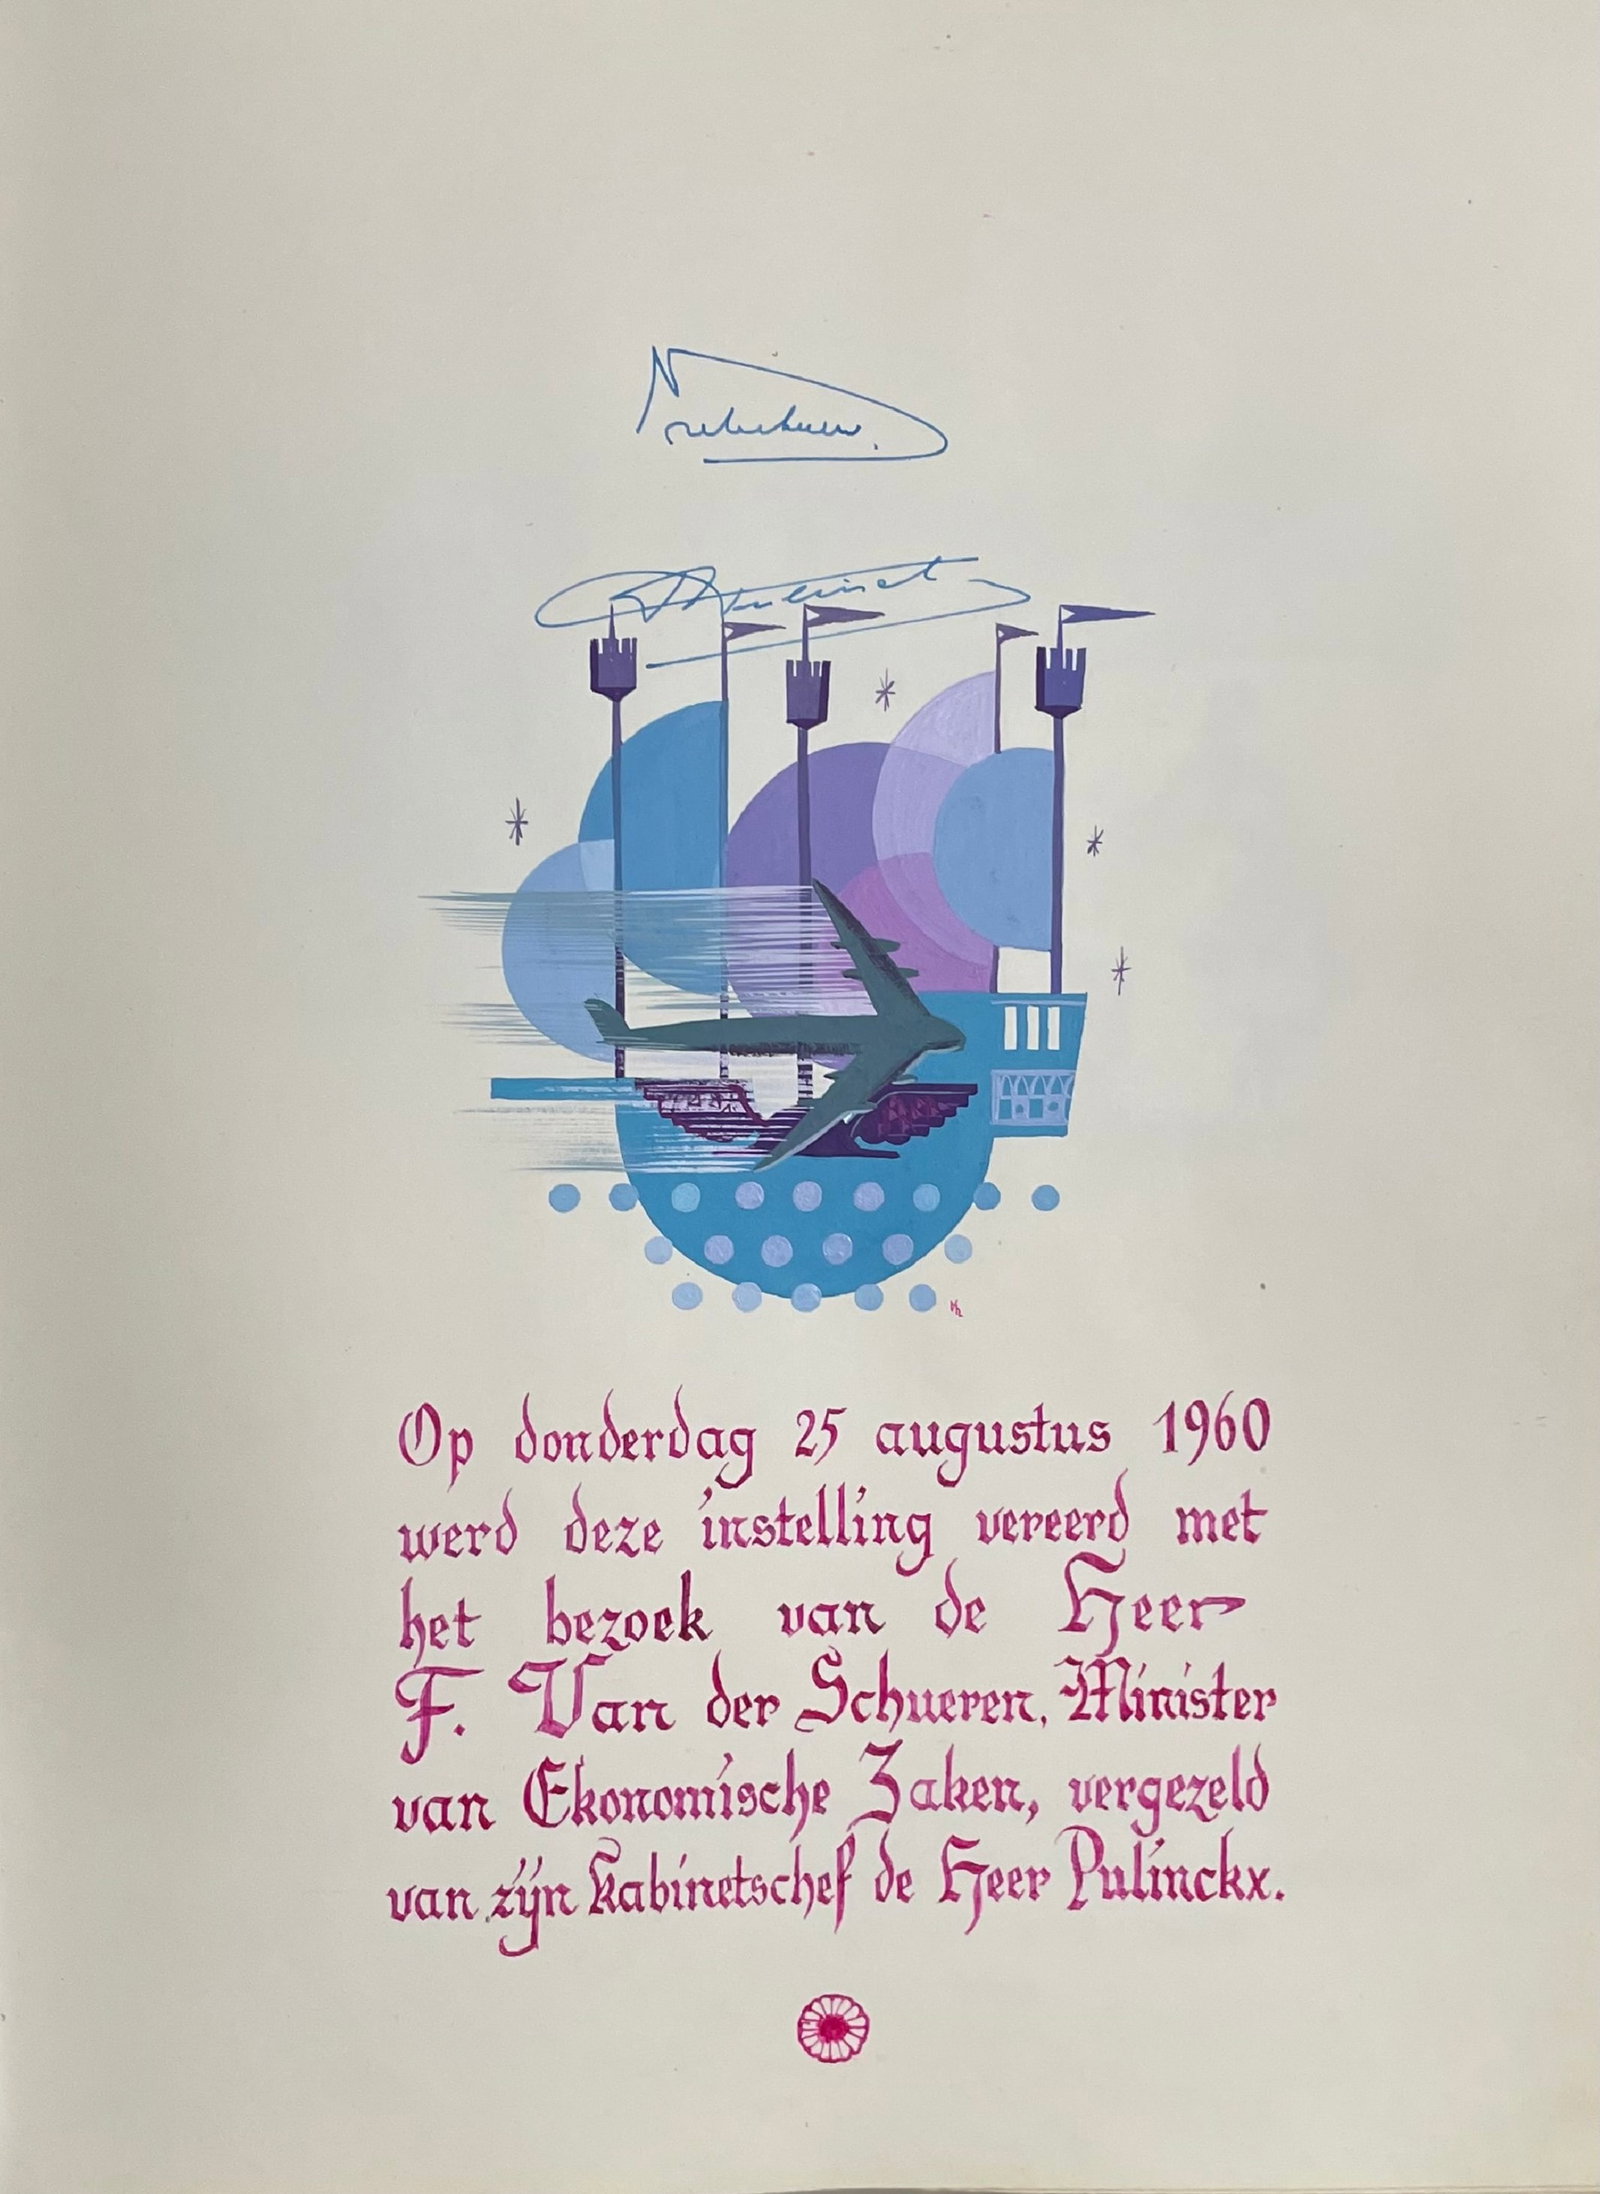 Op donderdag 25 augustus 1960
werd deze instelling vereerd met
het bezoek van de Heer
F. Van der Schueren, Minister
van Ekonomische Zaken, vergezeld
van zijn Kabinetschef de Heer Pulinckx.